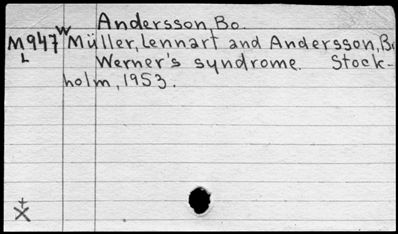 Andersson, Bo.
M947 W Müller, Lennart and Andersson, Bo
L Werner's syndrome. Stock-
holm, 1953.